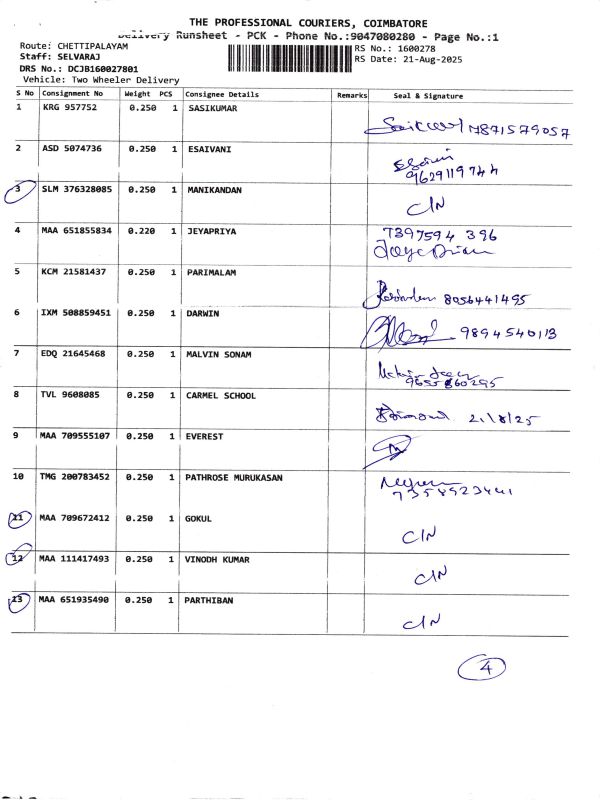 THE PROFESSIONAL COURIERS, COIMBATORE
Delivery Runsheet - PCK - Phone No.:9047080280 - Page No.:1
Route: CHETTIPALAYAM
Staff: SELVARAJ
DRS No.: DCJB160027801
Vehicle: Two Wheeler Delivery
RS No.: 1600278
RS Date: 21-Aug-2025
S No Consignment No Weight PCS Consignee Details Remarks Seal & Signature
1 KRG 957752 0.250 1 SASIKUMAR 7871579057
2 ASD 5074736 0.250 1 ESAIVANI
9629119744
3 SLM 376328085 0.250 1 MANIKANDAN C/N
4 MAA 651855834 0.220 1 JEYAPRIYA 7397594 396
5 KCM 21581437 0.250 1 PARIMALAM 8056441495
6 IXM 508859451 0.250 1 DARWIN 9894540113
7 EDQ 21645468 0.250 1 MALVIN SONAM
8 TVL 9608085 0.250 1 CARMEL SCHOOL 21/8/25
9 MAA 709555107 0.250 1 EVEREST
10 TMG 200783452 0.250 1 PATHROSE MURUKASAN
7358923441
11 MAA 709672412 0.250 1 GOKUL C/N
12 MAA 111417493 0.250 1 VINODH KUMAR C/N
13 MAA 651935490 0.250 1 PARTHIBAN C/N
4